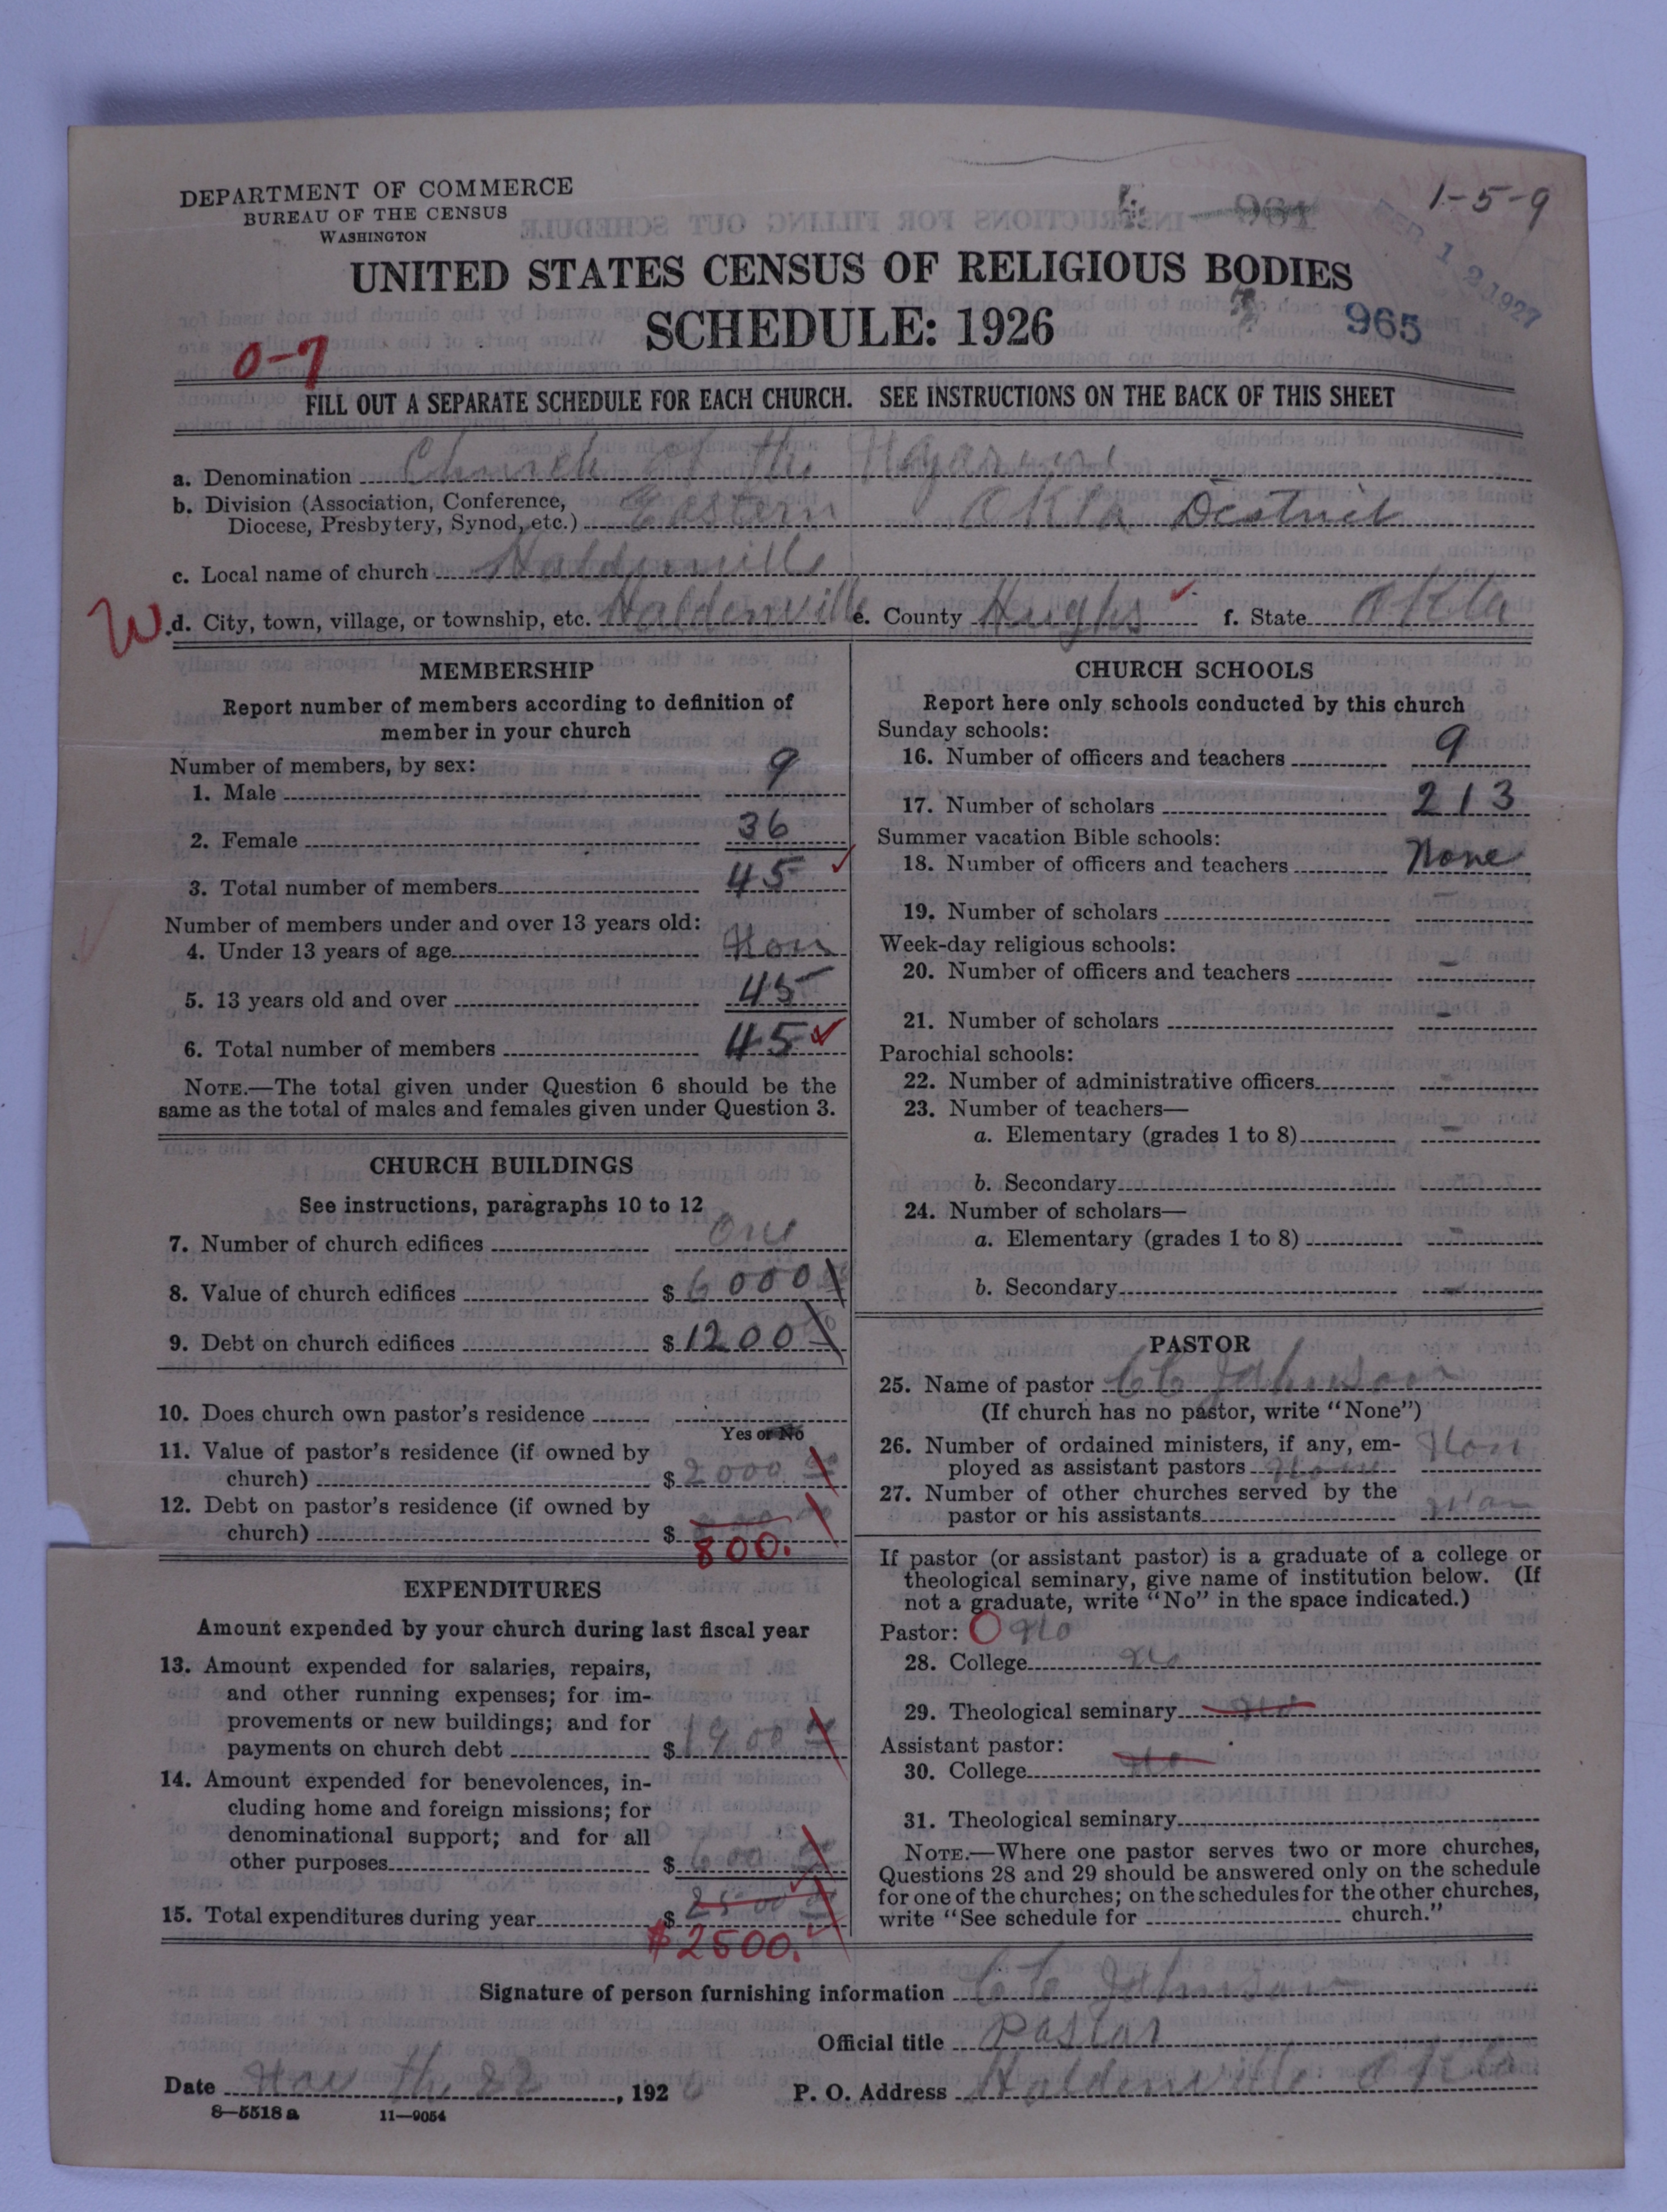 DEPARTMENT OF COMMERCE
BUREAU OF THE CENSUS
WASHINGTON
1-5-9
961
FEB 12 1927
UNITED STATES CENSUS OF RELIGIOUS BODIES
SCHEDULE: 1926
965
0-7
FILL OUT A SEPARATE SCHEDULE FOR EACH CHURCH. SEE INSTRUCTIONS ON THE BACK OF THIS SHEET
a. Denomination Church of the
b. Division (Association, Conference,
Diocese, Presbytery, Synod, etc.) Eastern Okla District
c. Local name of church Holdenville
W d. City, town, village, or township, etc. Holdenville e. County Hughs f. State Okla
MEMBERSHIP
Report number of members according to definition of
member in your church
Number of members, by sex:
1. Male 9
2. Female 36
3. Total number of members 45
Number of members under and over 13 years old:
4. Under 13 years of age Non
5. 13 years old and over 45
6. Total number of members 45
NOTE.—The total given under Question 6 should be the
same as the total of males and females given under Question 3.
CHURCH BUILDINGS
See instructions, paragraphs 10 to 12
7. Number of church edifices one
8. Value of church edifices $6000
9. Debt on church edifices $1200
10. Does church own pastor's residence
Yes or No
11. Value of pastor's residence (if owned by
church) $2000
12. Debt on pastor's residence (if owned by
church) $
800.
EXPENDITURES
Amount expended by your church during last fiscal year
13. Amount expended for salaries, repairs,
and other running expenses; for im-
provements or new buildings; and for
payments on church debt $1900
14. Amount expended for benevolences, in-
cluding home and foreign missions; for
denominational support; and for all
other purposes $600
15. Total expenditures during year $2500
$2500.
CHURCH SCHOOLS
Report here only schools conducted by this church
Sunday schools:
16. Number of officers and teachers 9
17. Number of scholars 213
Summer vacation Bible schools:
18. Number of officers and teachers None
19. Number of scholars -
Week-day religious schools:
20. Number of officers and teachers -
21. Number of scholars -
Parochial schools:
22. Number of administrative officers -
23. Number of teachers—
a. Elementary (grades 1 to 8) -
b. Secondary -
24. Number of scholars—
a. Elementary (grades 1 to 8) -
b. Secondary -
PASTOR
25. Name of pastor CC Johnson
(If church has no pastor, write "None")
26. Number of ordained ministers, if any, em- Non
ployed as assistant pastors None
27. Number of other churches served by the
pastor or his assistants Non
If pastor (or assistant pastor) is a graduate of a college or
theological seminary, give name of institution below. (If
not a graduate, write "No" in the space indicated.)
Pastor: O No
28. College No
29. Theological seminary No
Assistant pastor:
30. College No
31. Theological seminary
NOTE.—Where one pastor serves two or more churches,
Questions 28 and 29 should be answered only on the schedule
for one of the churches; on the schedules for the other churches,
write "See schedule for church."
Signature of person furnishing information CC Johnson
Official title Pastor
Date Nov th 22, 1926 P. O. Address Holdenville Okla
8—5518 a 11—9054